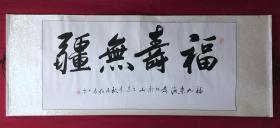 福壽無疆
福如東海壽比南山